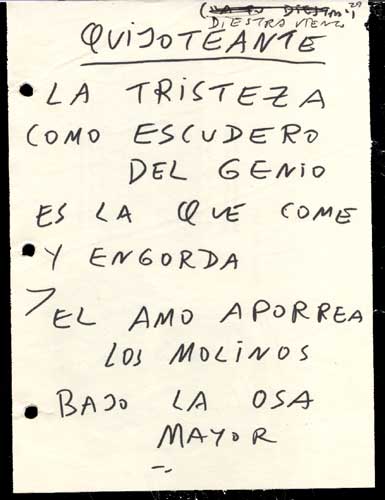 DIESTRA VIENTO
QUIJOTEANTE
LA TRISTEZA
COMO ESCUDERO
DEL GENIO
ES LA QUE COME
Y ENGORDA
EL AMO APORREA
LOS MOLINOS
BAJO LA OSA
MAYOR